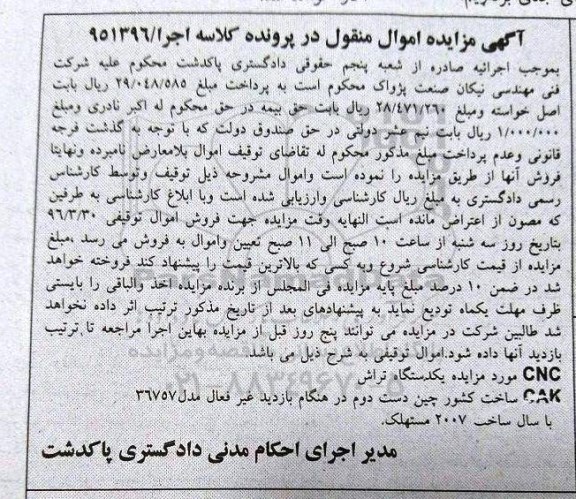 آگهی مزایده اموال منقول در پرونده کلاسه اجرا/۹۵۱۳۹۶
بموجب اجرائیه صادره از شعبه پنجم حقوقی دادگستری پاکدشت محکوم علیه شرکت
فنی مهندسی نیکان صنعت پژواک محکوم است به پرداخت مبلغ ۲۹/۰۴۸/۵۸۵ ریال بابت
اصل خواسته ومبلغ ۲۸/۴۷۱/۲۶۰ ریال بابت حق بیمه در حق محکوم له اکبر نادری ومبلغ
۱/۰۰۰/۰۰۰ ریال بابت نیم عشر دولتی در حق صندوق دولت که با توجه به گذشت فرجه
قانونی وعدم پرداخت مبلغ مذکور محکوم له تقاضای توقیف اموال بلامعارض نامبرده ونهایتا
فروش آنها از طریق مزایده را نموده است واموال مشروحه ذیل توقیف وتوسط کارشناس
رسمی دادگستری به مبلغ ریال کارشناسی وارزیابی شده است وبا ابلاغ کارشناسی به طرفین
که مصون از اعتراض مانده است النهایه وقت مزایده جهت فروش اموال توقیفی ۹۶/۳/۳۰
بتاریخ روز سه شنبه از ساعت ۱۰ صبح الی ۱۱ صبح تعیین واموال به فروش می رسد .مبلغ
مزایده از قیمت کارشناسی شروع وبه کسی که بالاترین قیمت را پیشنهاد کند فروخته خواهد
شد در ضمن ۱۰ درصد مبلغ پایه مزایده فی المجلس از برنده مزایده اخذ والباقی را بایستی
ظرف مهلت یکماه تودیع نماید به پیشنهادهای بعد از تاریخ مذکور ترتیب اثر داده نخواهد
شد طالبین شرکت در مزایده می توانند پنج روز قبل از مزایده بهاین اجرا مراجعه تا ترتیب
بازدید آنها داده شود.اموال توقیفی به شرح ذیل می باشد
CNC مورد مزایده یکدستگاه تراش
CAK ساخت کشور چین دست دوم در هنگام بازدید غیر فعال مدل۳۶۷۵۷
با سال ساخت ۲۰۰۷ مستهلک.
مدیر اجرای احکام مدنی دادگستری پاکدشت